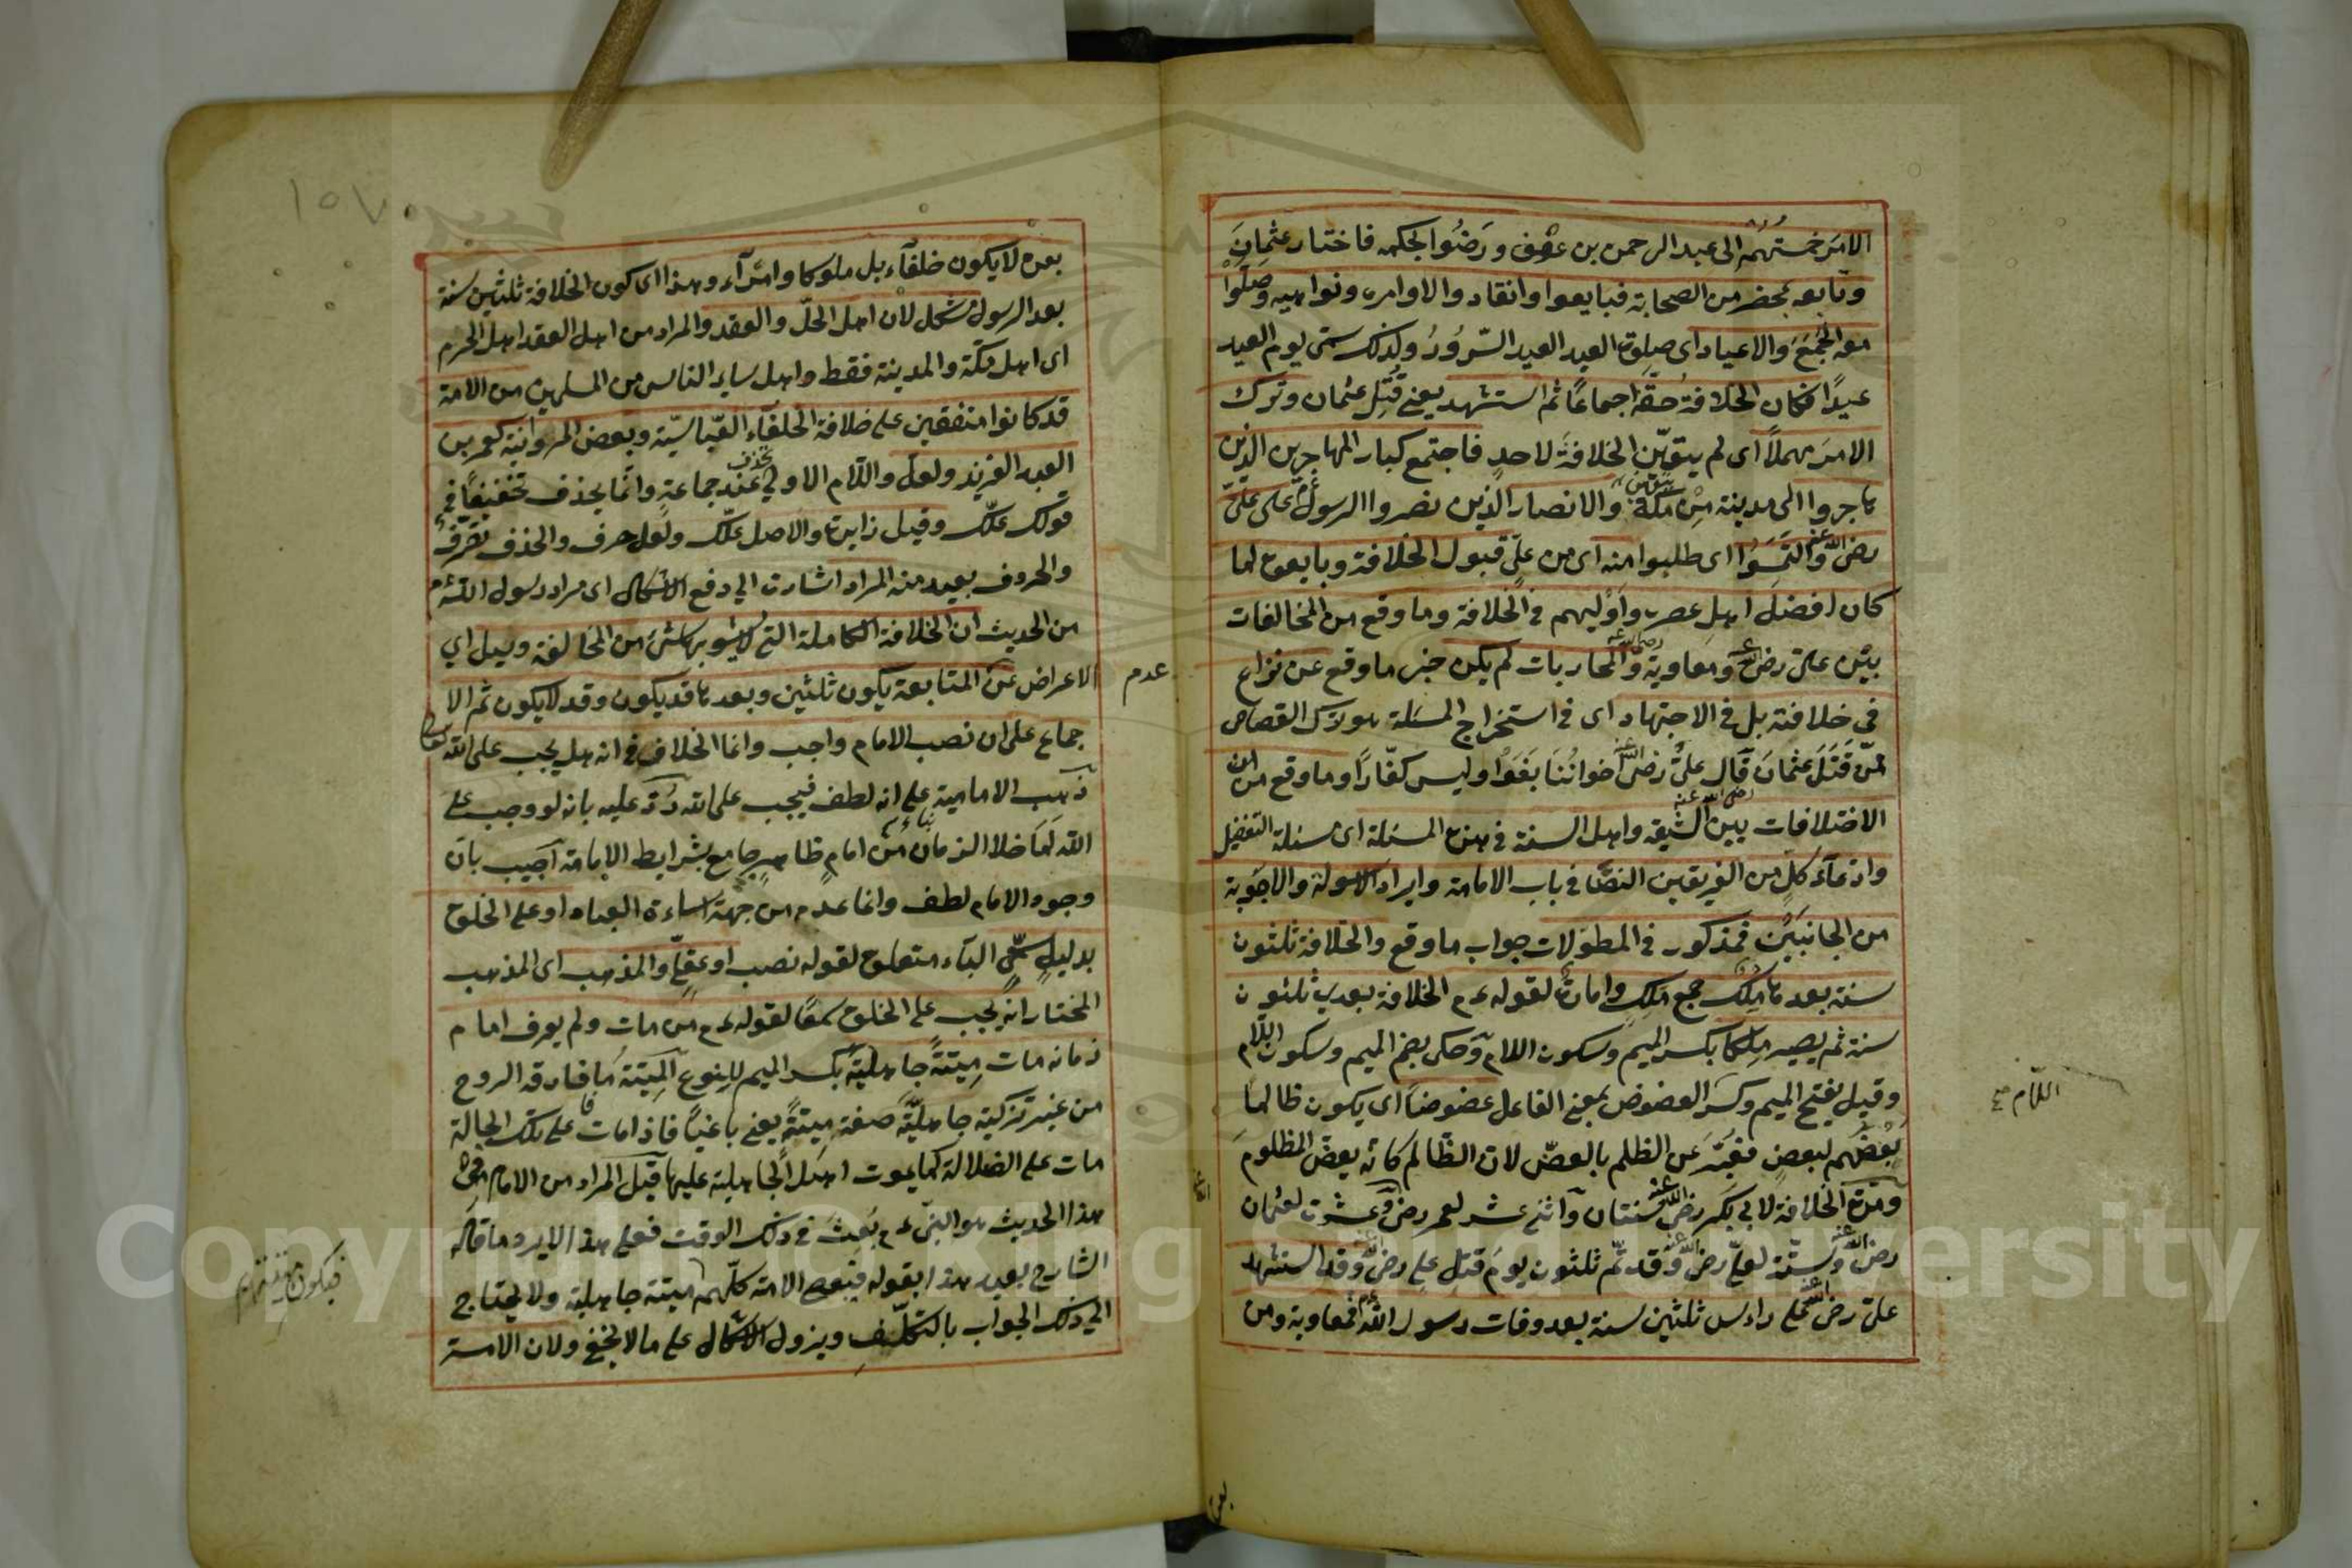 الامر خمستهم الى عبد الرحمن بن عوف ورضوا بحكمه فاختار عثمان
وتابعه بمحضر من الصحابة فبايعوا وانقادوا لاوامره ونواهيه وصلّوا
معه الجُمَعَ والاعياد اى صلوة العيد العيد السّرورُ ولذلك سمّى يوم العيد
عيدًا فكان الخلافة حقّه اجماعًا ثم استشهد يعنى قُتِل عثمان وترك
الامرَ مهملاً اى لم يتعيّن الخلافةَ لاحدٍ فاجتمع كبار المهاجرين الذين
هاجروا الى مدينة من مكة والانصار الذين نصروا الرسول على علىّ
رضى الله عنه والتمسوا اى طلبوا منه اى من علىّ قبول الخلافة وبايعوه لما
كان افضل اهل عصره واوليهم فى الخلافة وما وقع من المخالفات
بين على رضى الله عنه ومعاوية رضى الله عنه والمحاربات لم يكن خبر ما وقع عن نزاع
فى خلافته بل فى الاجتهاد اى فى استخراج المسئلة هو ترك القصاص
ممّن قَتَلَ عثمانَ قال علىّ رضى الله عنه اخواننا بَغَوْا وليس كفّارًا وما وقع من
الاختلافات بين الشيعة واهل السنة فى هذه المسئلة اى مسئلة التفضيل
وادّعاء كلٍّ من الفريقين النصّ فى باب الامامة وايراد الاسولة والاجوبة
من الجانبَيْن فمذكور فى المطوّلات جواب ما وقع والخلافة ثلثون
سنة بعدها مُلْك جمع ملك وامارة لقوله ءم الخلافة بعدى ثلثون
سنة ثم يصير مِلكا بكسر الميم وسكون اللام وحكى بضم الميم وسكون اللّام
وقيل بفتح الميم وكسر العضوض بمعنى الفاعل عضوضًا اى يكون ظالما
بعضُهم لبعضٍ فعُبّر عن الظلم بالعضّ لان الظالم كانه يعضّ المظلوم
ومدّة الخلافة لابى بكر رضى الله عنه سنتان واثنى عشر لعمر رضى وعشرة لعثمان
رضى الله عنه وستّة لعلىّ رضى الله عنه وقد تمّ ثلثون يوم قتل على رضى وقد استشهد
على رضى الله عنه على رأس ثلثين سنة بعد وفات رسول الله ءم فمعاوية ومن
اللّام
بعده
بعده لا يكون خلفآء بل ملوكا وامرآء وهذا اى كون الخلافة ثلثين سنة
بعد الرسول مشكل لان اهل الحلّ والعقد والمراد من اهل العقد اهل الحرم
اى اهل مكّة والمدينة فقط واهل ساير الناس من المسلمين من الامة
قد كانوا متفقين على خلافة الخلفآء العبّاسيّة وبعض المروانية كعمر بن
العبد العزيز ولعلّ واللّام الاولى يحذف عند جماعة وانّما يحذف تخفيفًا فى
قولك علّك وقيل زايدة والاصل علّك ولعل حرف والحذف تصرّف
والحروف بعيد منه المراد اشارة الى دفع الاشكال اى مراد رسول الله ءم
من الحديث ان الخلافة الكاملة التى لا يشوبها شئ من المخالفة وميل اى
الاعراض عن المتابعة يكون ثلثين وبعدها قد يكون وقد لا يكون ثم الا
عدم
جماع على ان نصب الامام واجب وانما الخلاف فى انه هل يجب على الله تعالى
ذهب الامامية على انه لطف فيجب على الله رُدّ عليه بانه لو وجب على
الله لَمَا خلا الزمان من امام ظاهر جامع بشرايط الامامة اجيب بان
وجود الامام لطف وانما عدم من جهة اساءة العباد او على الخلق
بدليل سمعىّ البآء متعلق لقوله نصب او عقلىّ والمذهب اى المذهب
المختار انه يجب على الخلق سمعًا لقوله ءم من مات ولم يعرف امام
زمانه مات مِيتةً جاهليّةً بكسر الميم للنوع المَيتة ما فارقه الروح
من غير تزكية جاهليّةً صفة ميتةً يعنى باغيًا فاذا مات على تلك الحالة
مات على الضلالة كما يموت اهل الجاهلية عليها قيل المراد من الامام فى
هذا الحديث هو النبى ءم بَعِثَ فى ذلك الوقت فعلى هذا لا يرد ما قاله
الشارح بعيد هذا بقوله فيعصى الامة كلّهم ميتة جاهلية ولا يحتاج
الى ذلك الجواب بالتكلّف ويزول الاشكال على ما لا يخفى ولان الامة
Copyright © King Saud University